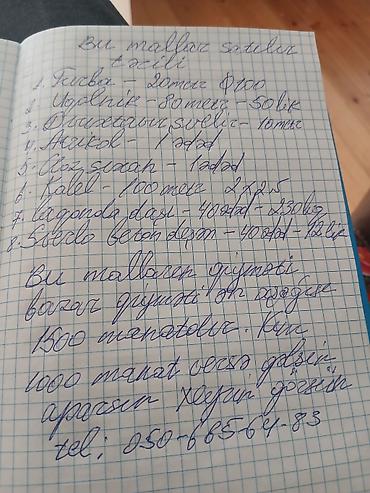 Bu mallar satılır
təcili
1. Turba - 20 metr Ø 100
2. Uqolnik - 80 metr - 50 lik
3. svelir - 10 metr
4. - 1 ədəd
5. sıxan - 1 ədəd
6. Kabel - 100 metr 2x2.5
7. Laqonda daşı - 40 ədəd - 230 luq
8. Sverlo beton deşən - 40 ədəd - 12 lik
Bu malların qiyməti
bazar qiyməti ən aşağısı
1500 manatdır. Kim
1000 manat versə gəlsin
aparsın xeyrin görsün
tel: 050-665-64-83